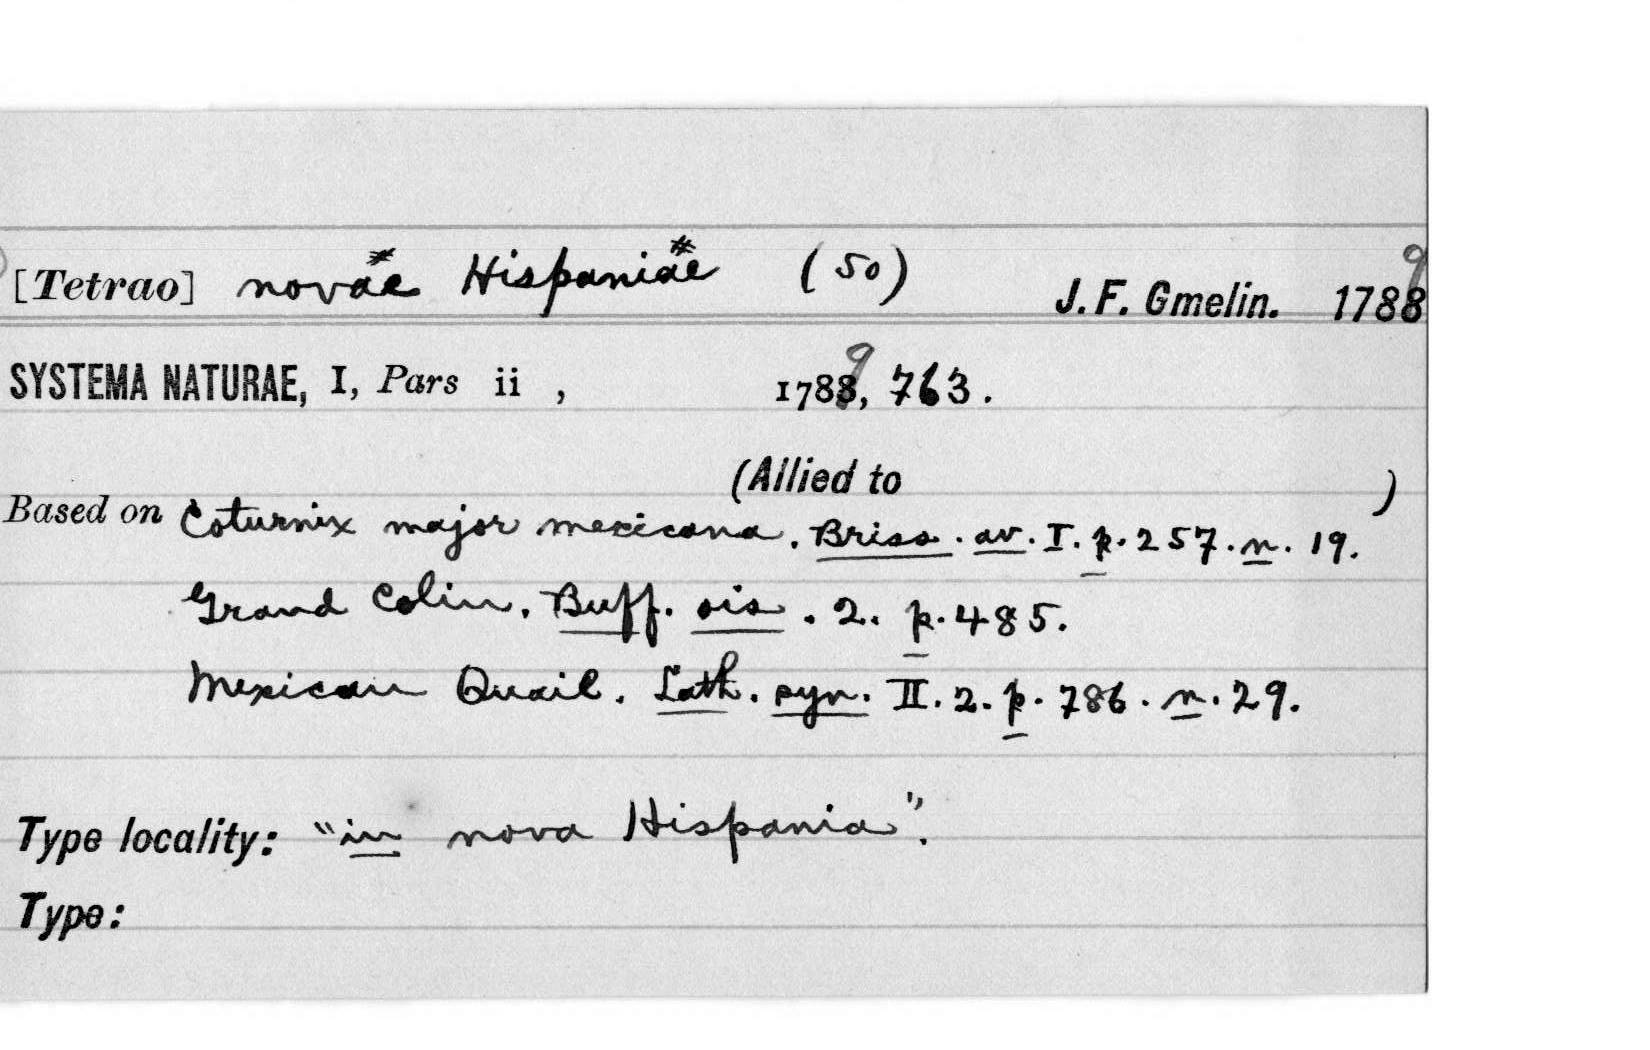 [Tetrao] novae Hispaniae (50) J. F. Gmelin. 1788 9
SYSTEMA NATURAE, I, Pars ii , 1788 9, 763.
(Allied to )
Based on Coturnix major mexicana. Briss. av. I. p. 257. n. 19.
Grand Colin. Buff. ois. 2. p. 485.
Mexican Quail. Lath. syn. II. 2. p. 786. n. 29.
Type locality: "in nova Hispania".
Type: